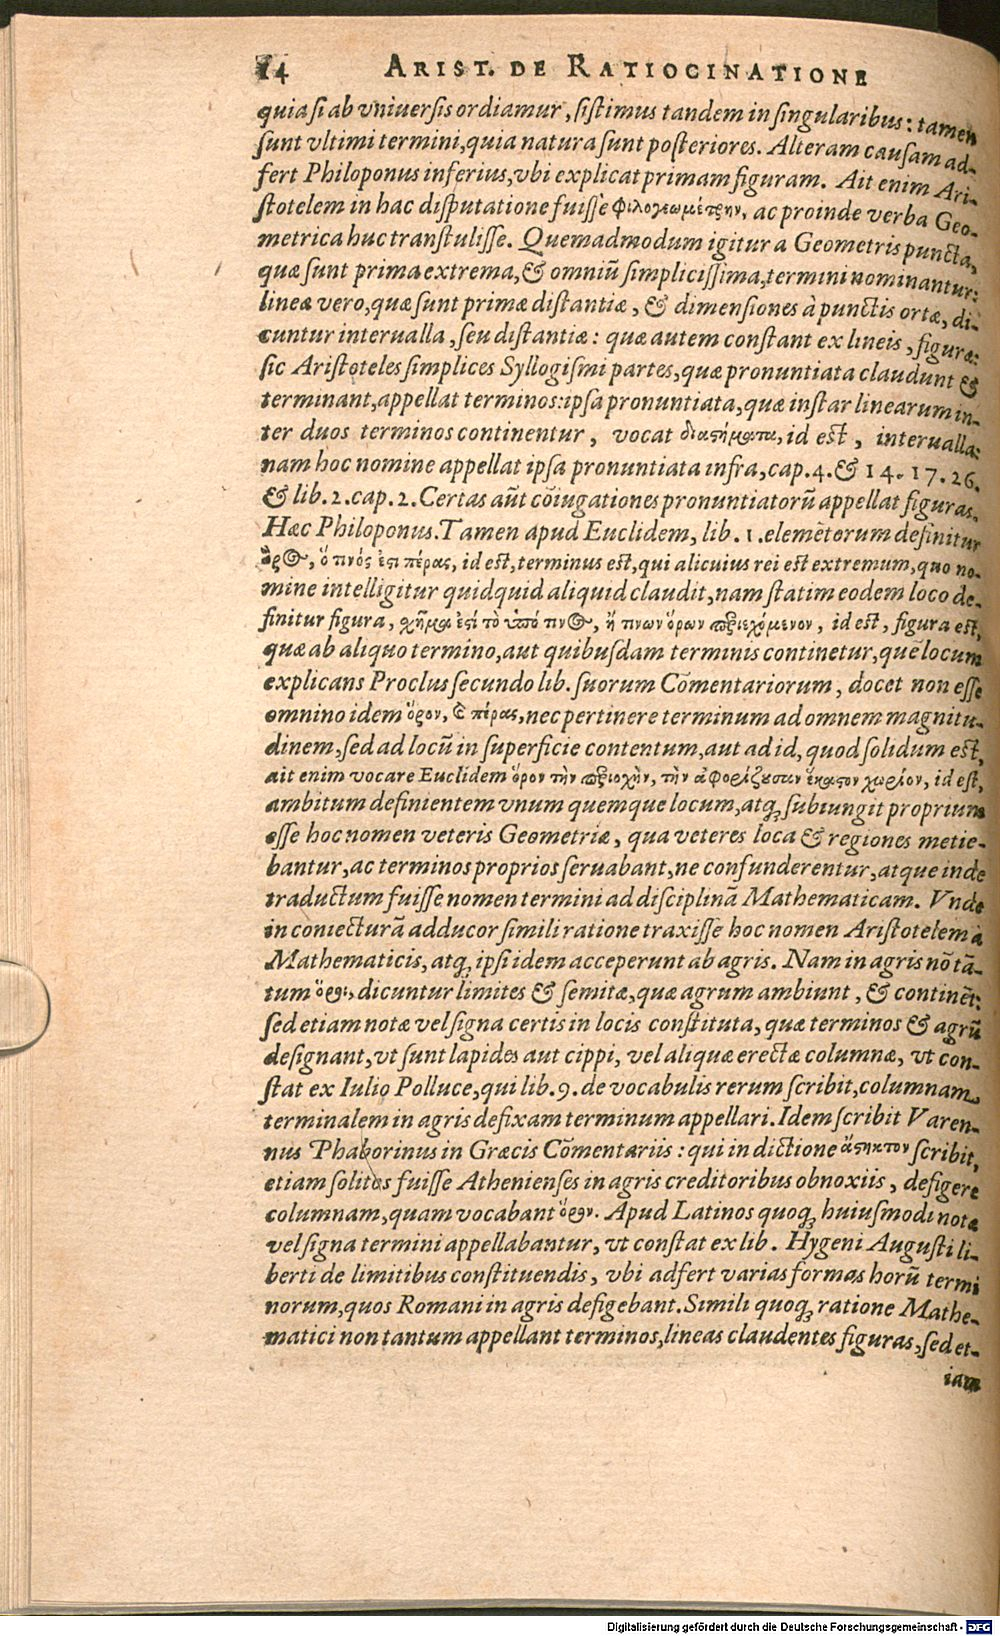 14 ARIST. DE RATIOCINATIONE
quia si ab vniuersis ordiamur, sistimus tandem in singularibus: tamen
sunt vltimi termini, quia natura sunt posteriores. Alteram causam ad-
fert Philoponus inferius, vbi explicat primam figuram. Ait enim Ari-
stotelem in hac disputatione fuisse φιλογεωμέτρην, ac proinde verba Geo-
metrica huc transtulisse. Quemadmodum igitur a Geometris puncta,
quæ sunt prima extrema, & omniū simplicissima, termini nominantur:
lineæ vero, quæ sunt primæ distantiæ, & dimensiones à punctis ortæ, di-
cuntur interualla, seu distantiæ: quæ autem constant ex lineis, figuræ:
sic Aristoteles simplices Syllogismi partes, quæ pronuntiata claudunt &
terminant, appellat terminos: ipsa pronuntiata, quæ instar linearum in-
ter duos terminos continentur, vocat διαστήματα, id est, interualla:
nam hoc nomine appellat ipsa pronuntiata infra, cap. 4. & 14. 17. 26.
& lib. 2. cap. 2. Certas aūt cōiugationes pronuntiatorū appellat figuras.
Hæc Philoponus. Tamen apud Euclidem, lib. 1. elemētorum definitur
ὅρος, ὅ τινός ἐστι πέρας, id est, terminus est, qui alicuius rei est extremum, quo no-
mine intelligitur quidquid aliquid claudit, nam statim eodem loco de-
finitur figura, σχῆμα ἐστί τὸ ὑπό τινος, ἤ τινων ὅρων περιεχόμενον, id est, figura est,
quæ ab aliquo termino, aut quibusdam terminis continetur, quē locum
explicans Proclus secundo lib. suorum Cōmentariorum, docet non esse
omnino idem ὅρον, & πέρας, nec pertinere terminum ad omnem magnitu-
dinem, sed ad locū in superficie contentum, aut ad id, quod solidum est,
ait enim vocare Euclidem ὅρον τὴν περιοχὴν, τὴν ἀφορίζουσαν ἕκαστον χωρίον, id est,
ambitum definientem vnum quemque locum, atq; subiungit proprium
esse hoc nomen veteris Geometriæ, qua veteres loca & regiones metie-
bantur, ac terminos proprios seruabant, ne confunderentur, atque inde
traductum fuisse nomen termini ad disciplinā Mathematicam. Vnde
in coniecturā adducor simili ratione traxisse hoc nomen Aristotelem a
Mathematicis, atq; ipsi idem acceperunt ab agris. Nam in agris nō tā-
tum ὅροι, dicuntur limites & semitæ, quæ agrum ambiunt, & continēt:
sed etiam notæ vel signa certis in locis constituta, quæ terminos & agrū
designant, vt sunt lapides aut cippi, vel aliquæ erectæ columnæ, vt con-
stat ex Iulio Polluce, qui lib. 9. de vocabulis rerum scribit, columnam
terminalem in agris defixam terminum appellari. Idem scribit Varen-
nus Phaborinus in Græcis Cōmentariis: qui in dictione ἄστικτον scribit,
etiam solitos fuisse Athenienses in agris creditoribus obnoxiis, defigere
columnam, quam vocabant ὅρον. Apud Latinos quoq; huiusmodi notæ
vel signa termini appellabantur, vt constat ex lib. Hygeni Augusti li-
berti de limitibus constituendis, vbi adfert varias formas horū termi
norum, quos Romani in agris defigebant. Simili quoq; ratione Mathe-
matici non tantum appellant terminos, lineas claudentes figuras, sed et-
iam
Digitalisierung gefördert durch die Deutsche Forschungsgemeinschaft - DFG